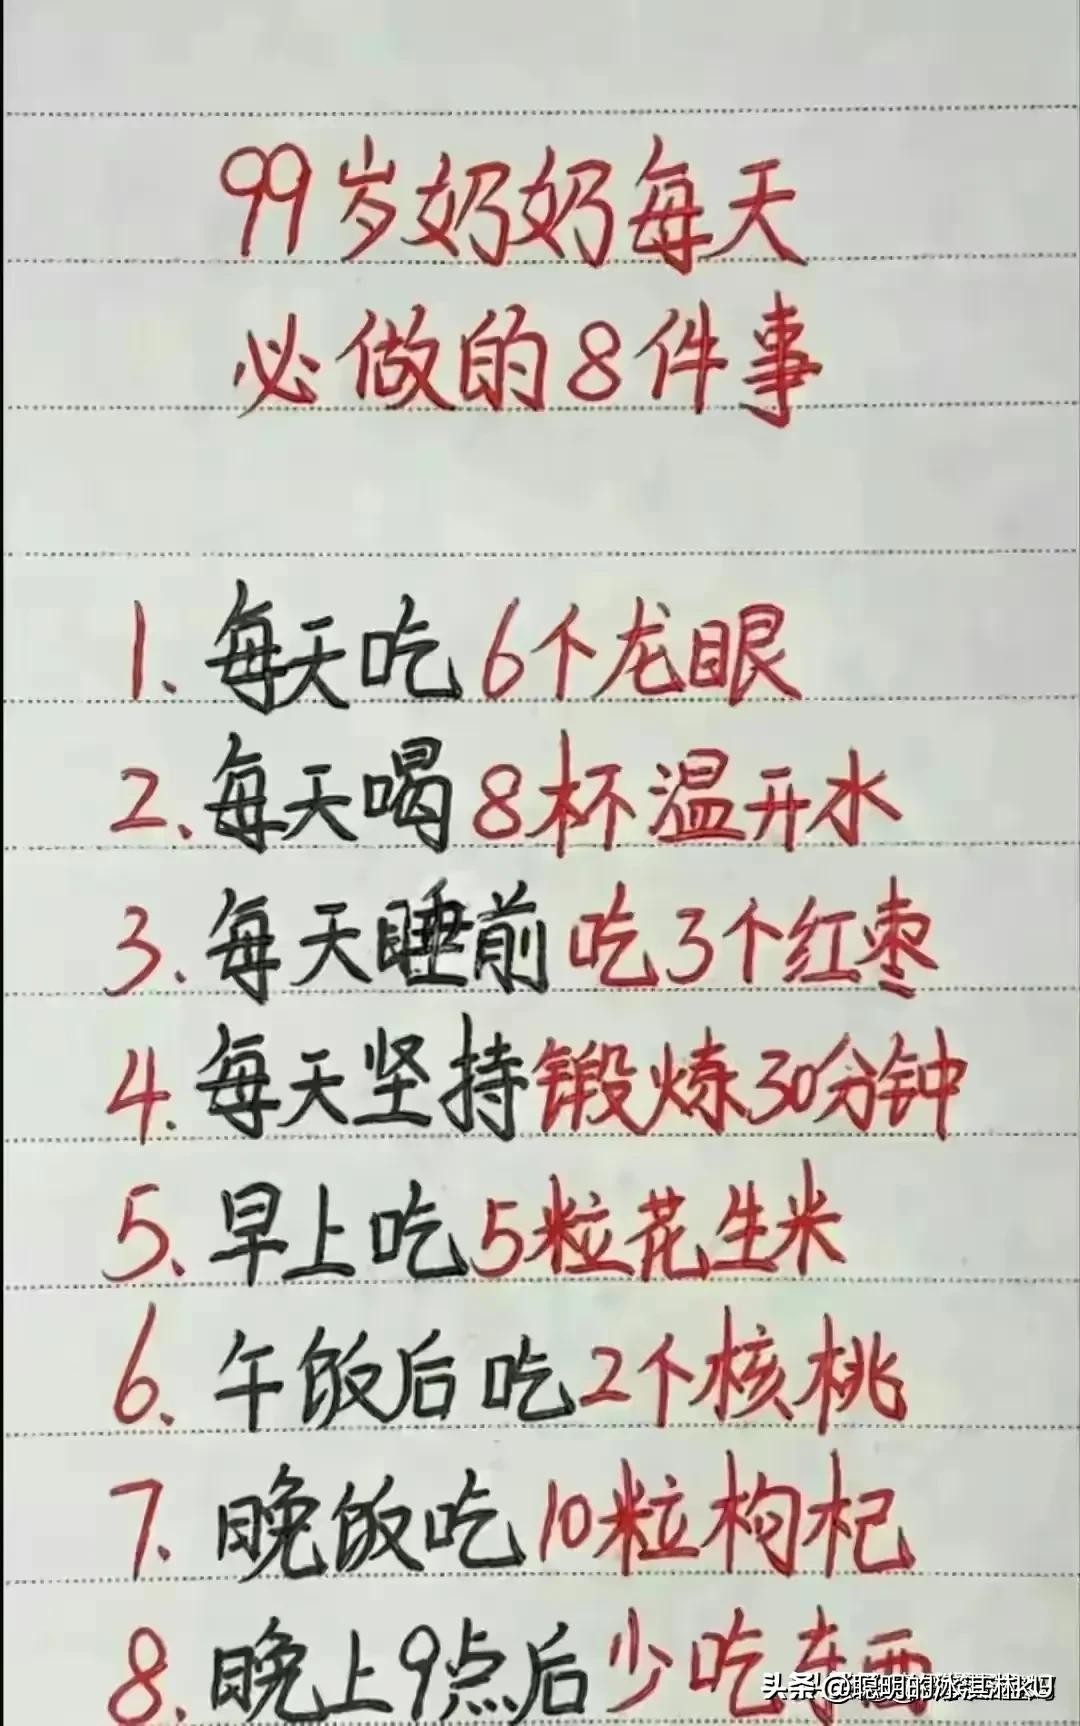 99岁奶奶每天
必做的8件事
1、每天吃6个龙眼
2、每天喝8杯温开水
3、每天睡前吃3个红枣
4、每天坚持锻炼30分钟
5、早上吃5粒花生米
6、午饭后吃2个核桃
7、晚饭吃10粒枸杞
8、晚上9点后少吃东西
头条@聪明的冰淇淋KU